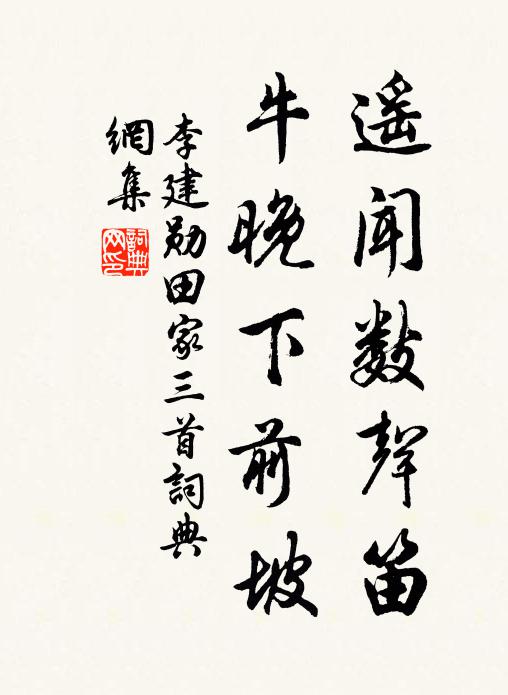 遥闻数聲笛
牛晚下前坡
李建勋田家三首詞典
網集
詞典
网印